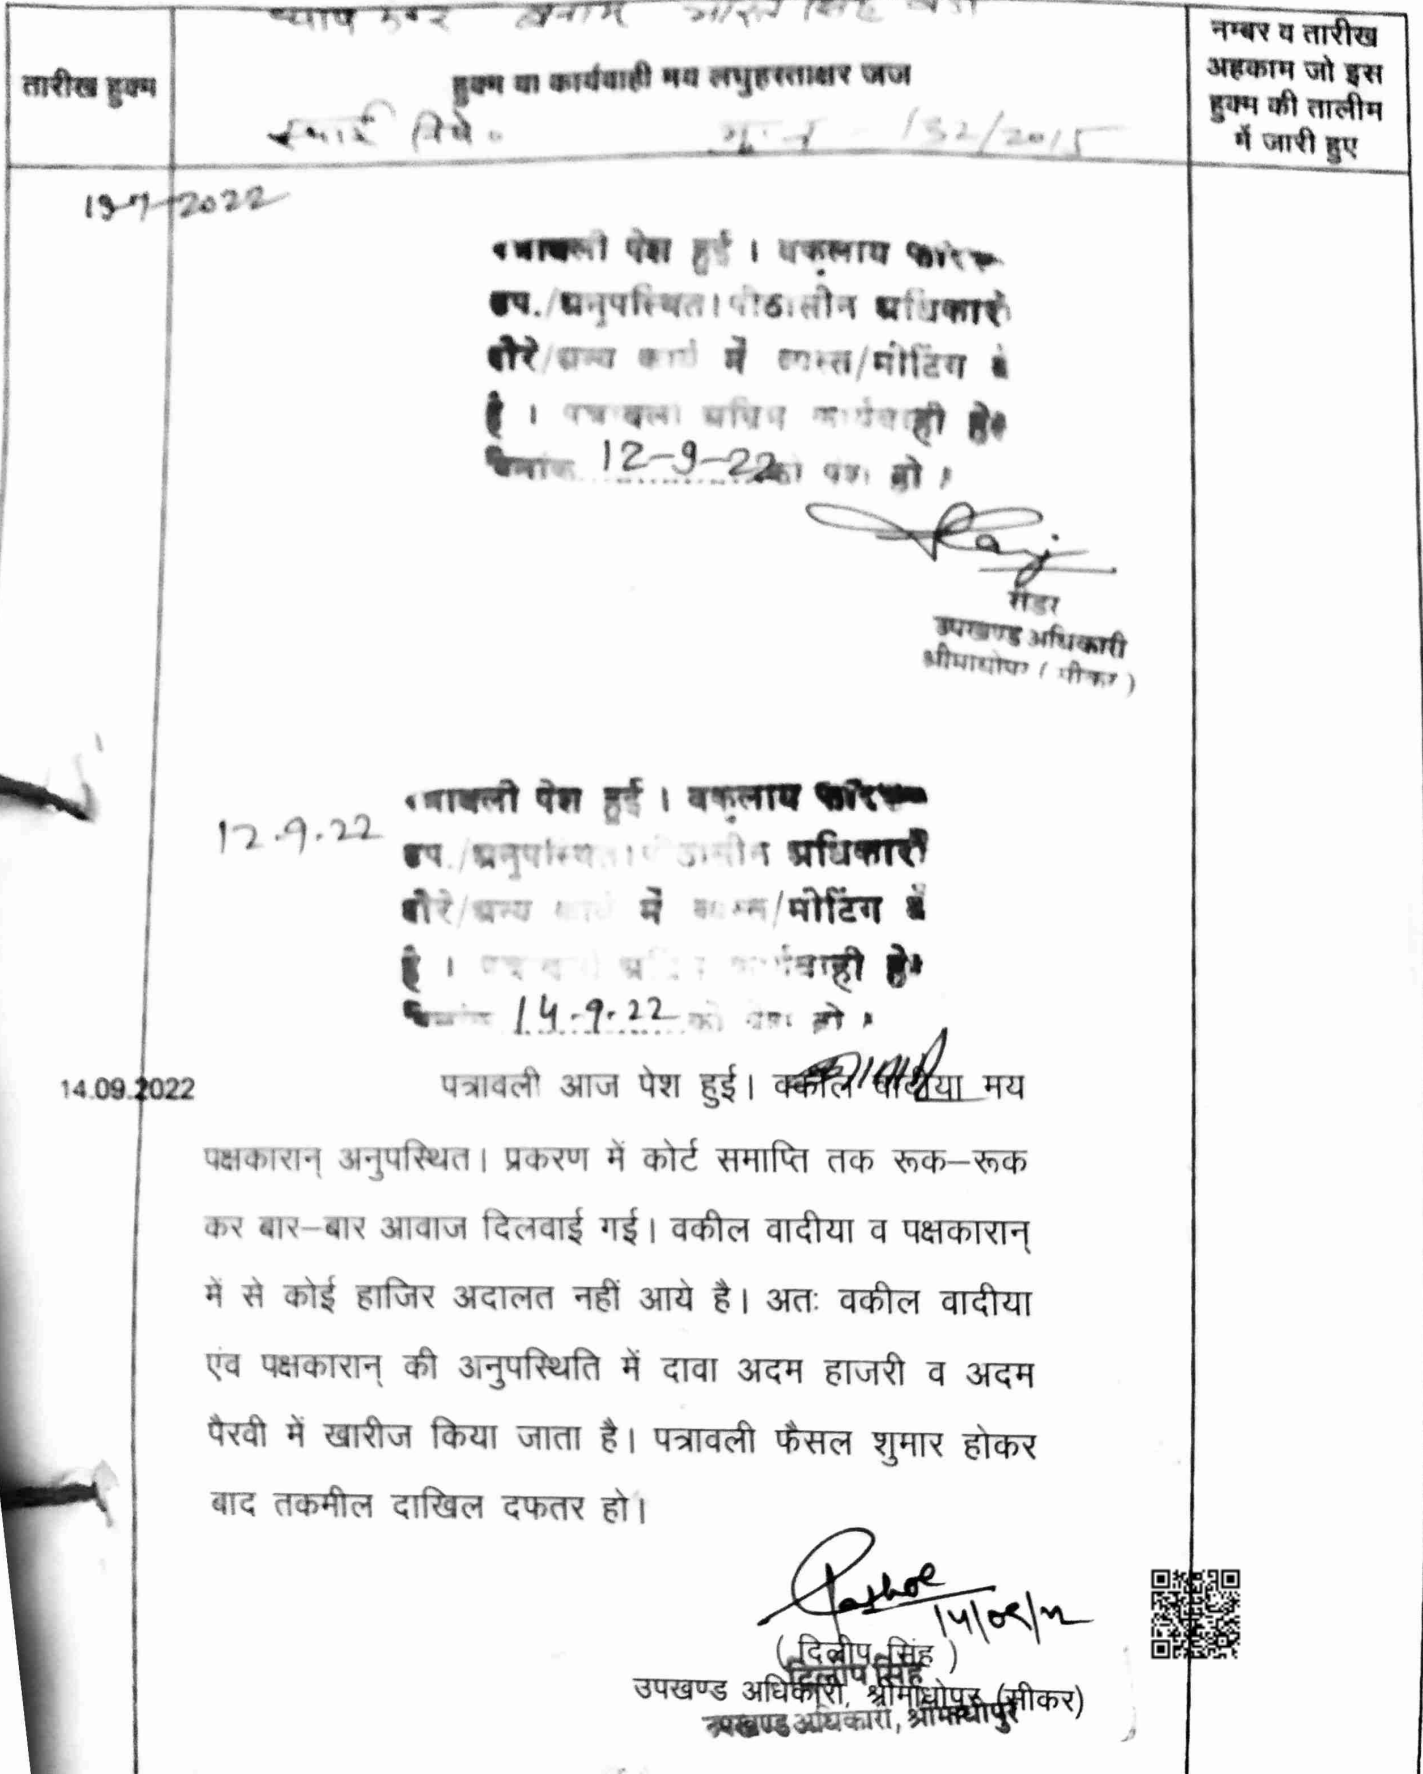 बनाम सिंह
तारीख हुक्म
हुक्म या कार्यवाही मय लघुहस्ताक्षर जज
नम्बर व तारीख
अहकाम जो इस
हुक्म की तालीम
में जारी हुए
132/2015
19-7-2022
पत्रावली पेश हुई । वकलाय
उप./अनुपस्थित। पीठासीन अधिकारी
दौरे/अन्य कार्य में व्यस्त/मीटिंग में
है । पत्रावली अग्रिम कार्यवाही हेतु
दिनांक 12-9-22 को पेश हो ।
रीडर
उपखण्ड अधिकारी
श्रीमाधोपुर ( सीकर )
12.9.22
पत्रावली पेश हुई । वकलाय
उप./अनुपस्थित। पीठासीन अधिकारी
दौरे/अन्य कार्य में व्यस्त/मीटिंग में
है । पत्रावली अग्रिम कार्यवाही हेतु
दिनांक 14.9.22 को पेश हो ।
14.09.2022
पत्रावली आज पेश हुई। वकील वादीया मय
पक्षकारान् अनुपस्थित। प्रकरण में कोर्ट समाप्ति तक रूक–रूक
कर बार–बार आवाज दिलवाई गई। वकील वादीया व पक्षकारान्
में से कोई हाजिर अदालत नहीं आये है। अतः वकील वादीया
एंव पक्षकारान् की अनुपस्थिति में दावा अदम हाजरी व अदम
पैरवी में खारीज किया जाता है। पत्रावली फैसल शुमार होकर
बाद तकमील दाखिल दफतर हो।
14/09/22
( दिलीप सिंह )
दिलीप सिंह
उपखण्ड अधिकारी, श्रीमाधोपुर (सीकर)
उपखण्ड अधिकारी, श्रीमाधोपुर